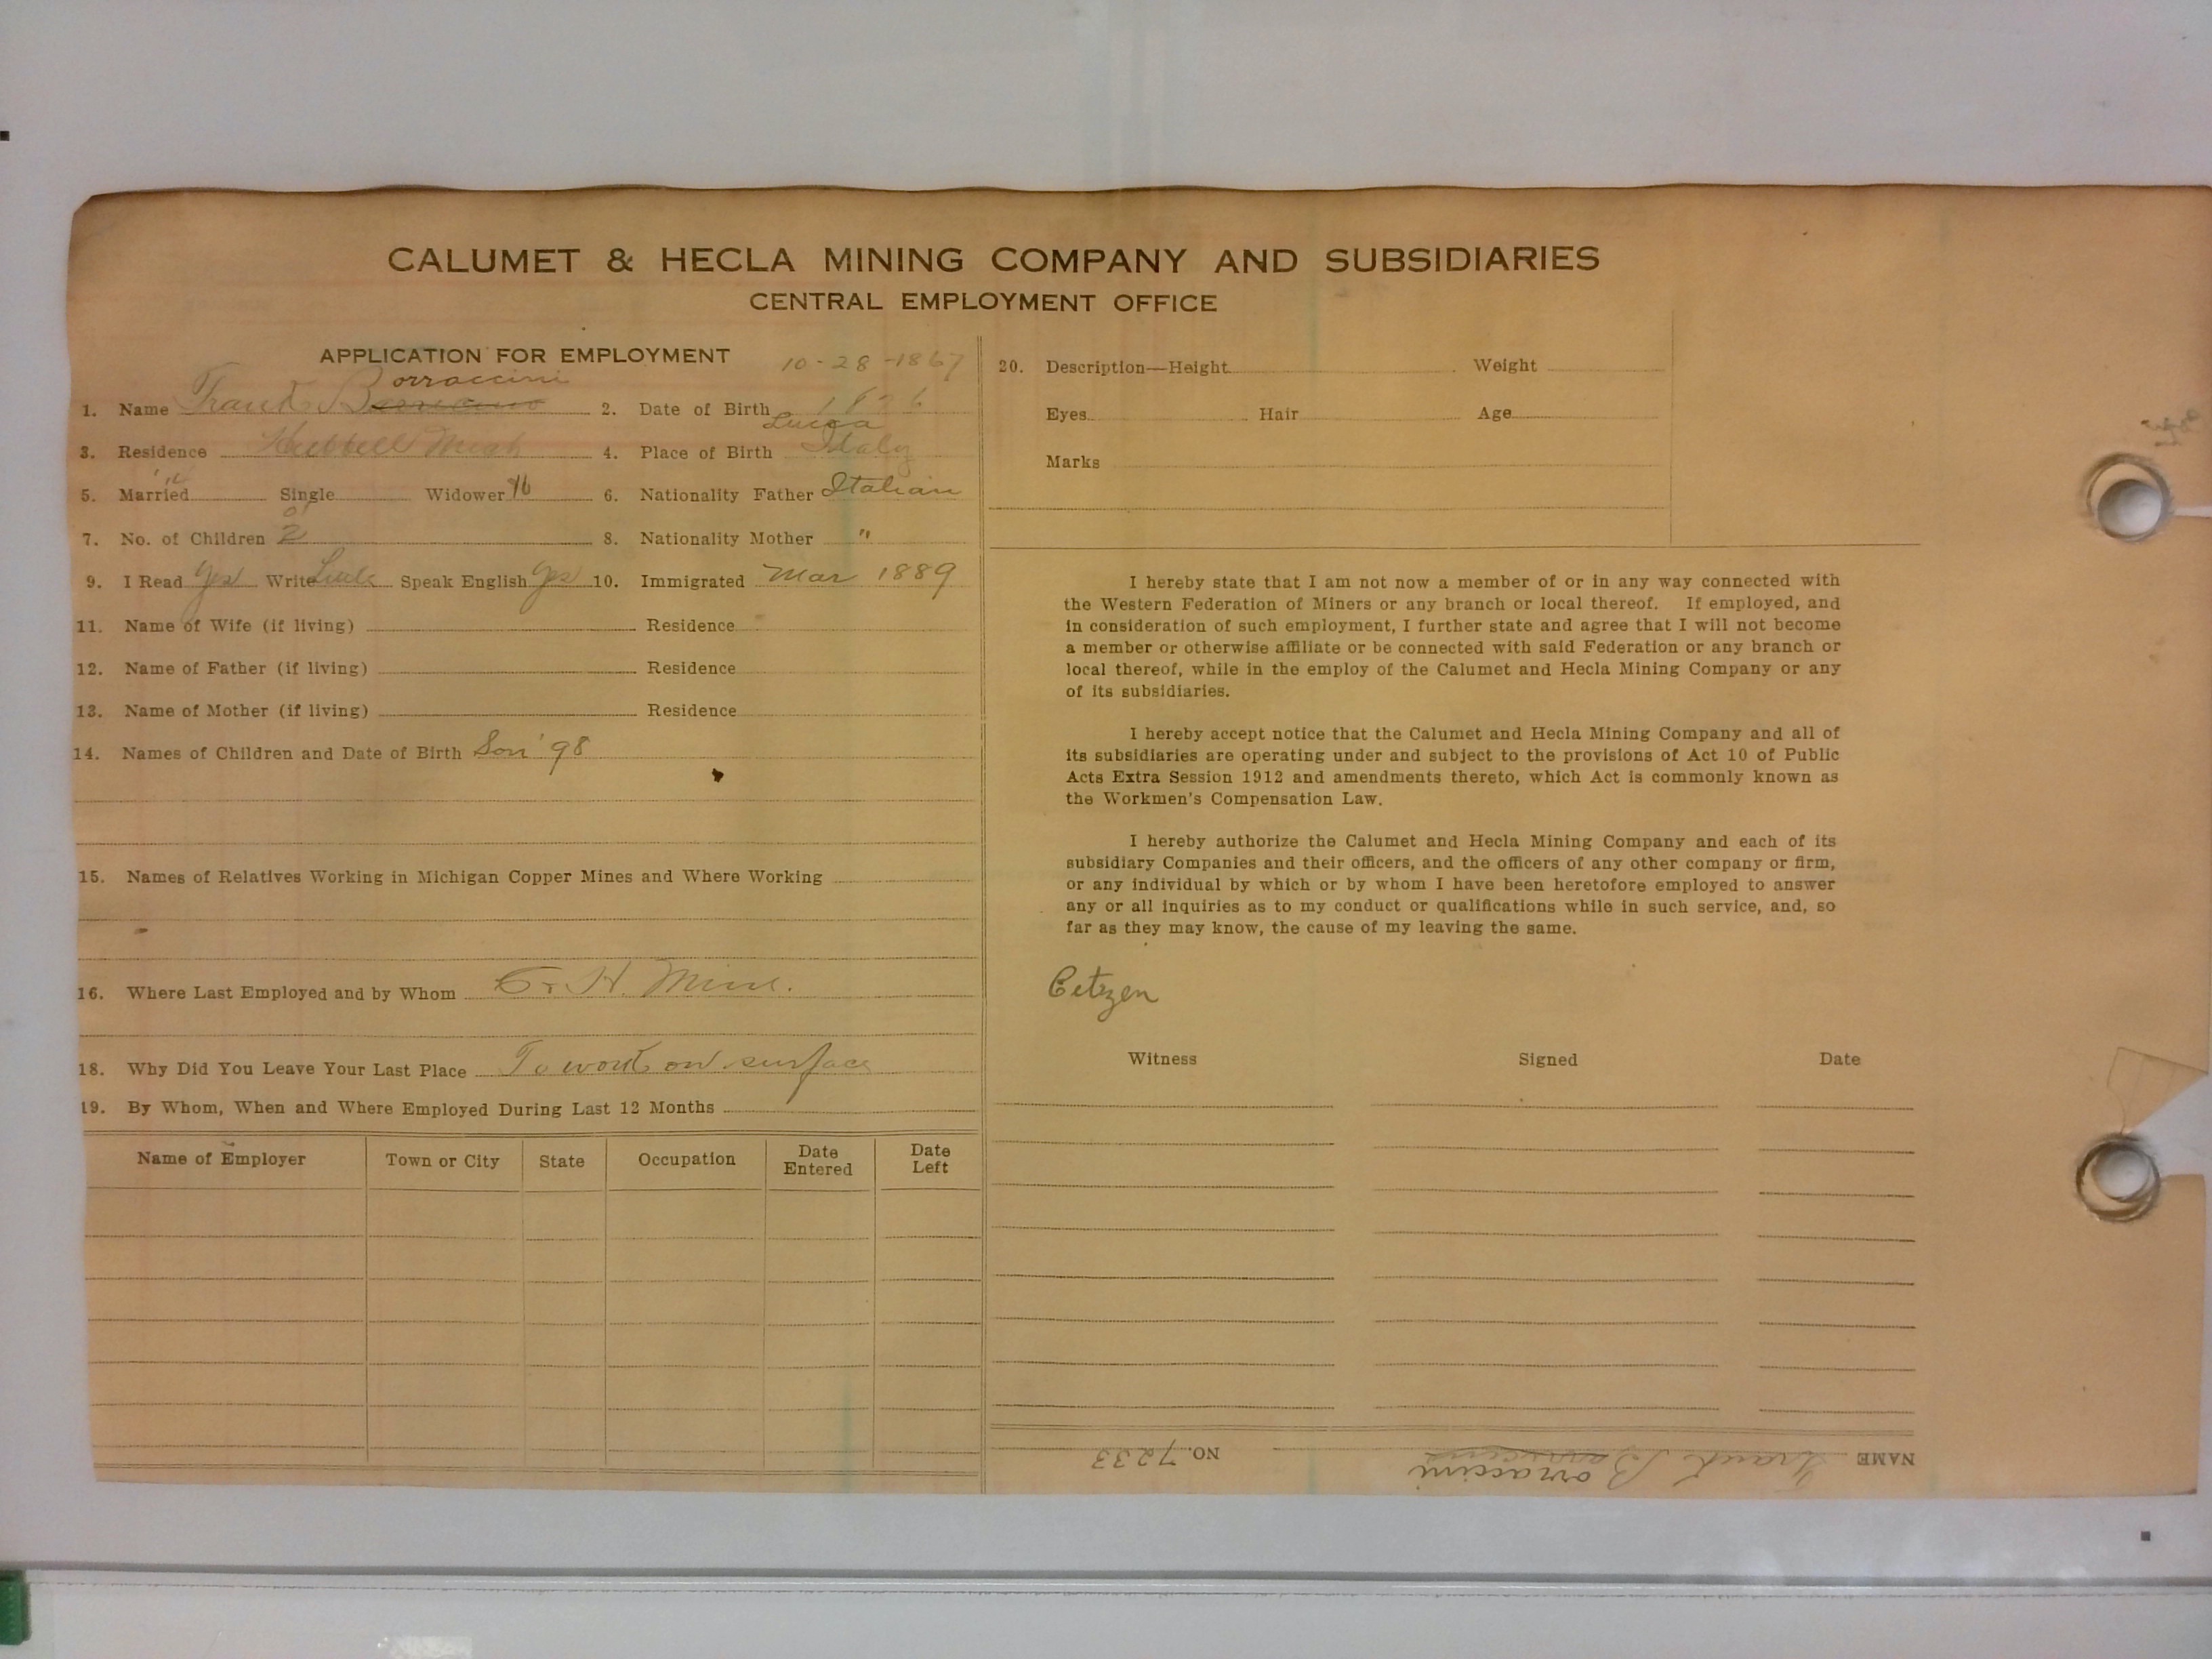 CALUMET & HECLA MINING COMPANY AND SUBSIDIARIES
CENTRAL EMPLOYMENT OFFICE
APPLICATION FOR EMPLOYMENT
10-28-1867
orraccini
1. Name Frank B
2. Date of Birth
Lucca
3. Residence Hubbell Mich
4. Place of Birth Italy
5. Married Single Widower
6. Nationality Father Italian
7. No. of Children 2
8. Nationality Mother "
9. I Read Yes Write Speak English Yes
10. Immigrated Mar 1889
11. Name of Wife (if living) Residence
12. Name of Father (if living) Residence
13. Name of Mother (if living) Residence
14. Names of Children and Date of Birth Son '98
15. Names of Relatives Working in Michigan Copper Mines and Where Working
16. Where Last Employed and by Whom C & H. Mine.
18. Why Did You Leave Your Last Place To work on surface
19. By Whom, When and Where Employed During Last 12 Months
Name of Employer Town or City State Occupation Date Entered Date Left
20. Description—Height Weight
Eyes Hair Age
Marks
I hereby state that I am not now a member of or in any way connected with
the Western Federation of Miners or any branch or local thereof. If employed, and
in consideration of such employment, I further state and agree that I will not become
a member or otherwise affiliate or be connected with said Federation or any branch or
local thereof, while in the employ of the Calumet and Hecla Mining Company or any
of its subsidiaries.
I hereby accept notice that the Calumet and Hecla Mining Company and all of
its subsidiaries are operating under and subject to the provisions of Act 10 of Public
Acts Extra Session 1912 and amendments thereto, which Act is commonly known as
the Workmen's Compensation Law.
I hereby authorize the Calumet and Hecla Mining Company and each of its
subsidiary Companies and their officers, and the officers of any other company or firm,
or any individual by which or by whom I have been heretofore employed to answer
any or all inquiries as to my conduct or qualifications while in such service, and, so
far as they may know, the cause of my leaving the same.
Citzen
Witness Signed Date
NAME Frank B orraccini NO. 7233